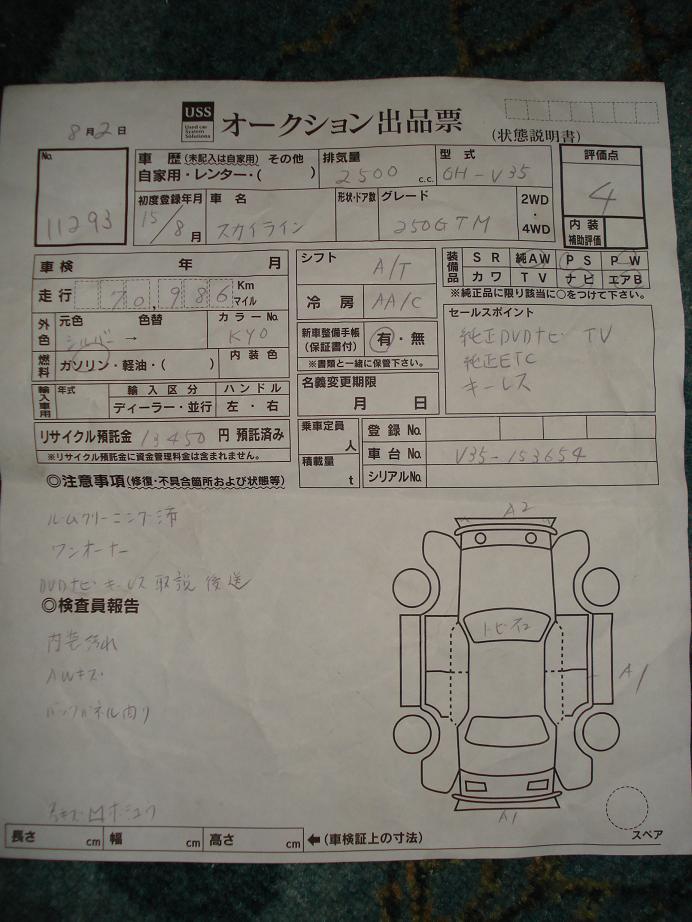 8月2日
USS
Used car
System
Solutions
オークション出品票
(状態説明書)
No.
11293
車歴(未記入は自家用) その他
自家用・レンター・( )
排気量
2500 c.c.
型式
GH-V35
評価点
4
初度登録年月
15/8月
車名
スカイライン
形状・ドア数
グレード
250GTM
2WD
・
4WD
内装
補助評価
車検 年 月
走行 70,986 Km
マイル
外色
元色 色替
シルバー →
カラーNo.
KY0
燃料
ガソリン・軽油・( )
内装色
輸入車用
年式
輸入区分
ディーラー・並行
ハンドル
左・右
リサイクル預託金 13450 円 預託済み
※リサイクル預託金に資金管理料金は含まれません。
シフト
A/T
冷房
AA/C
新車整備手帳
(保証書付)
有・無
※書類と一緒に保管下さい。
名義変更期限
月 日
乗車定員
人
積載量
t
装備品
SR 純AW PS PW
カワ TV ナビ エアB
※純正品に限り該当に○をつけて下さい。
セールスポイント
純正DVDナビ TV
純正ETC
キーレス
登録No.
車台No. V35-153654
シリアルNo.
◎注意事項(修復・不具合個所および状態等)
ルームクリーニング済
ワンオーナー
DVDナビ・キーレス 取説 後送
◎検査員報告
内装汚れ
AWキズ
A2
トビ石
A1
A1
スペア
長さ cm 幅 cm 高さ cm ←(車検証上の寸法)